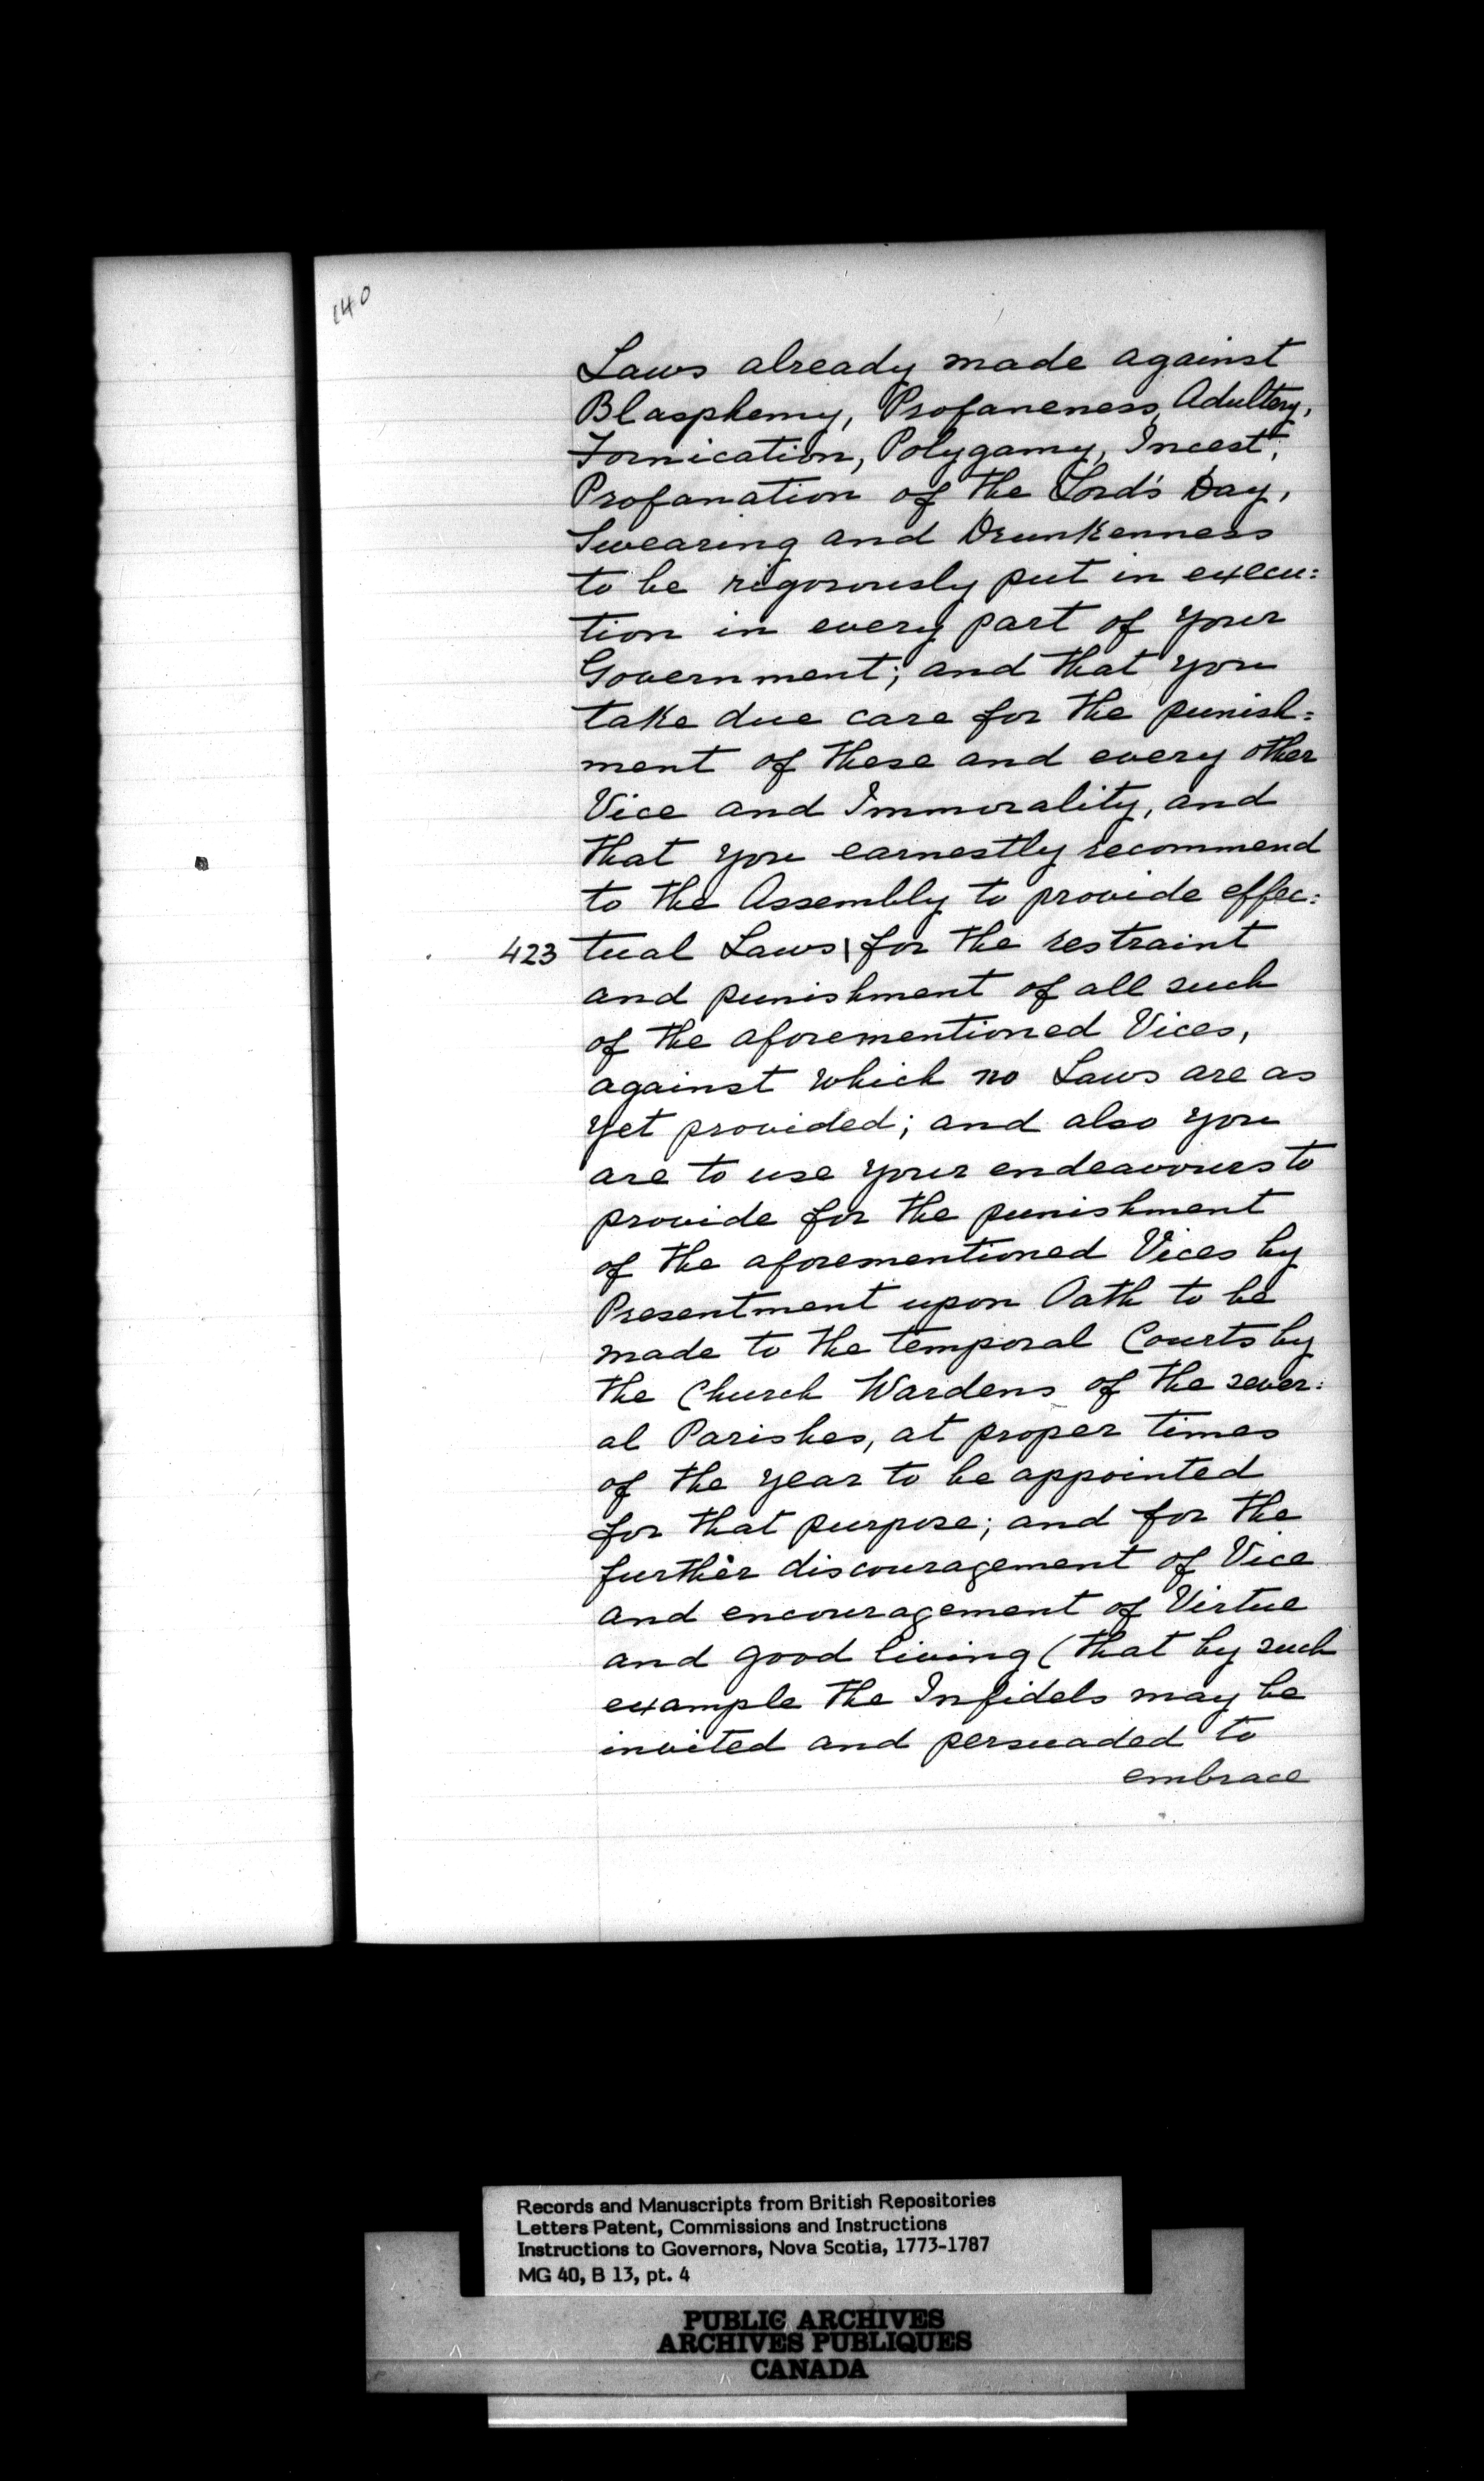 140
Laws already made against
Blasphemy, Profaneness, Adultery,
Fornication, Polygamy, Incest,
Profanation of the Lord's Day,
Swearing and Drunkenness
to be rigorously put in execu=
tion in every part of your
Government; and that you
take due care for the punish=
ment of these and every other
Vice and Immorality, and
that you earnestly recommend
to the Assembly to provide effec=
423 tual Laws | for the restraint
and punishment of all such
of the aforementioned Vices,
against which no Laws are as
yet provided; and also you
are to use your endeavours to
provide for the punishment
of the aforementioned Vices by
Presentment upon Oath to be
made to the temporal Courts by
the Church Wardens of the sever=
al Parishes, at proper times
of the year to be appointed
for that purpose; and for the
further discouragement of Vice
and encouragement of Virtue
and good living (that by such
example the Infidels may be
invited and persuaded to
embrace
Records and Manuscripts from British Repositories
Letters Patent, Commissions and Instructions
Instructions to Governors, Nova Scotia, 1773-1787
MG 40, B 13, pt. 4
PUBLIC ARCHIVES
ARCHIVES PUBLIQUES
CANADA